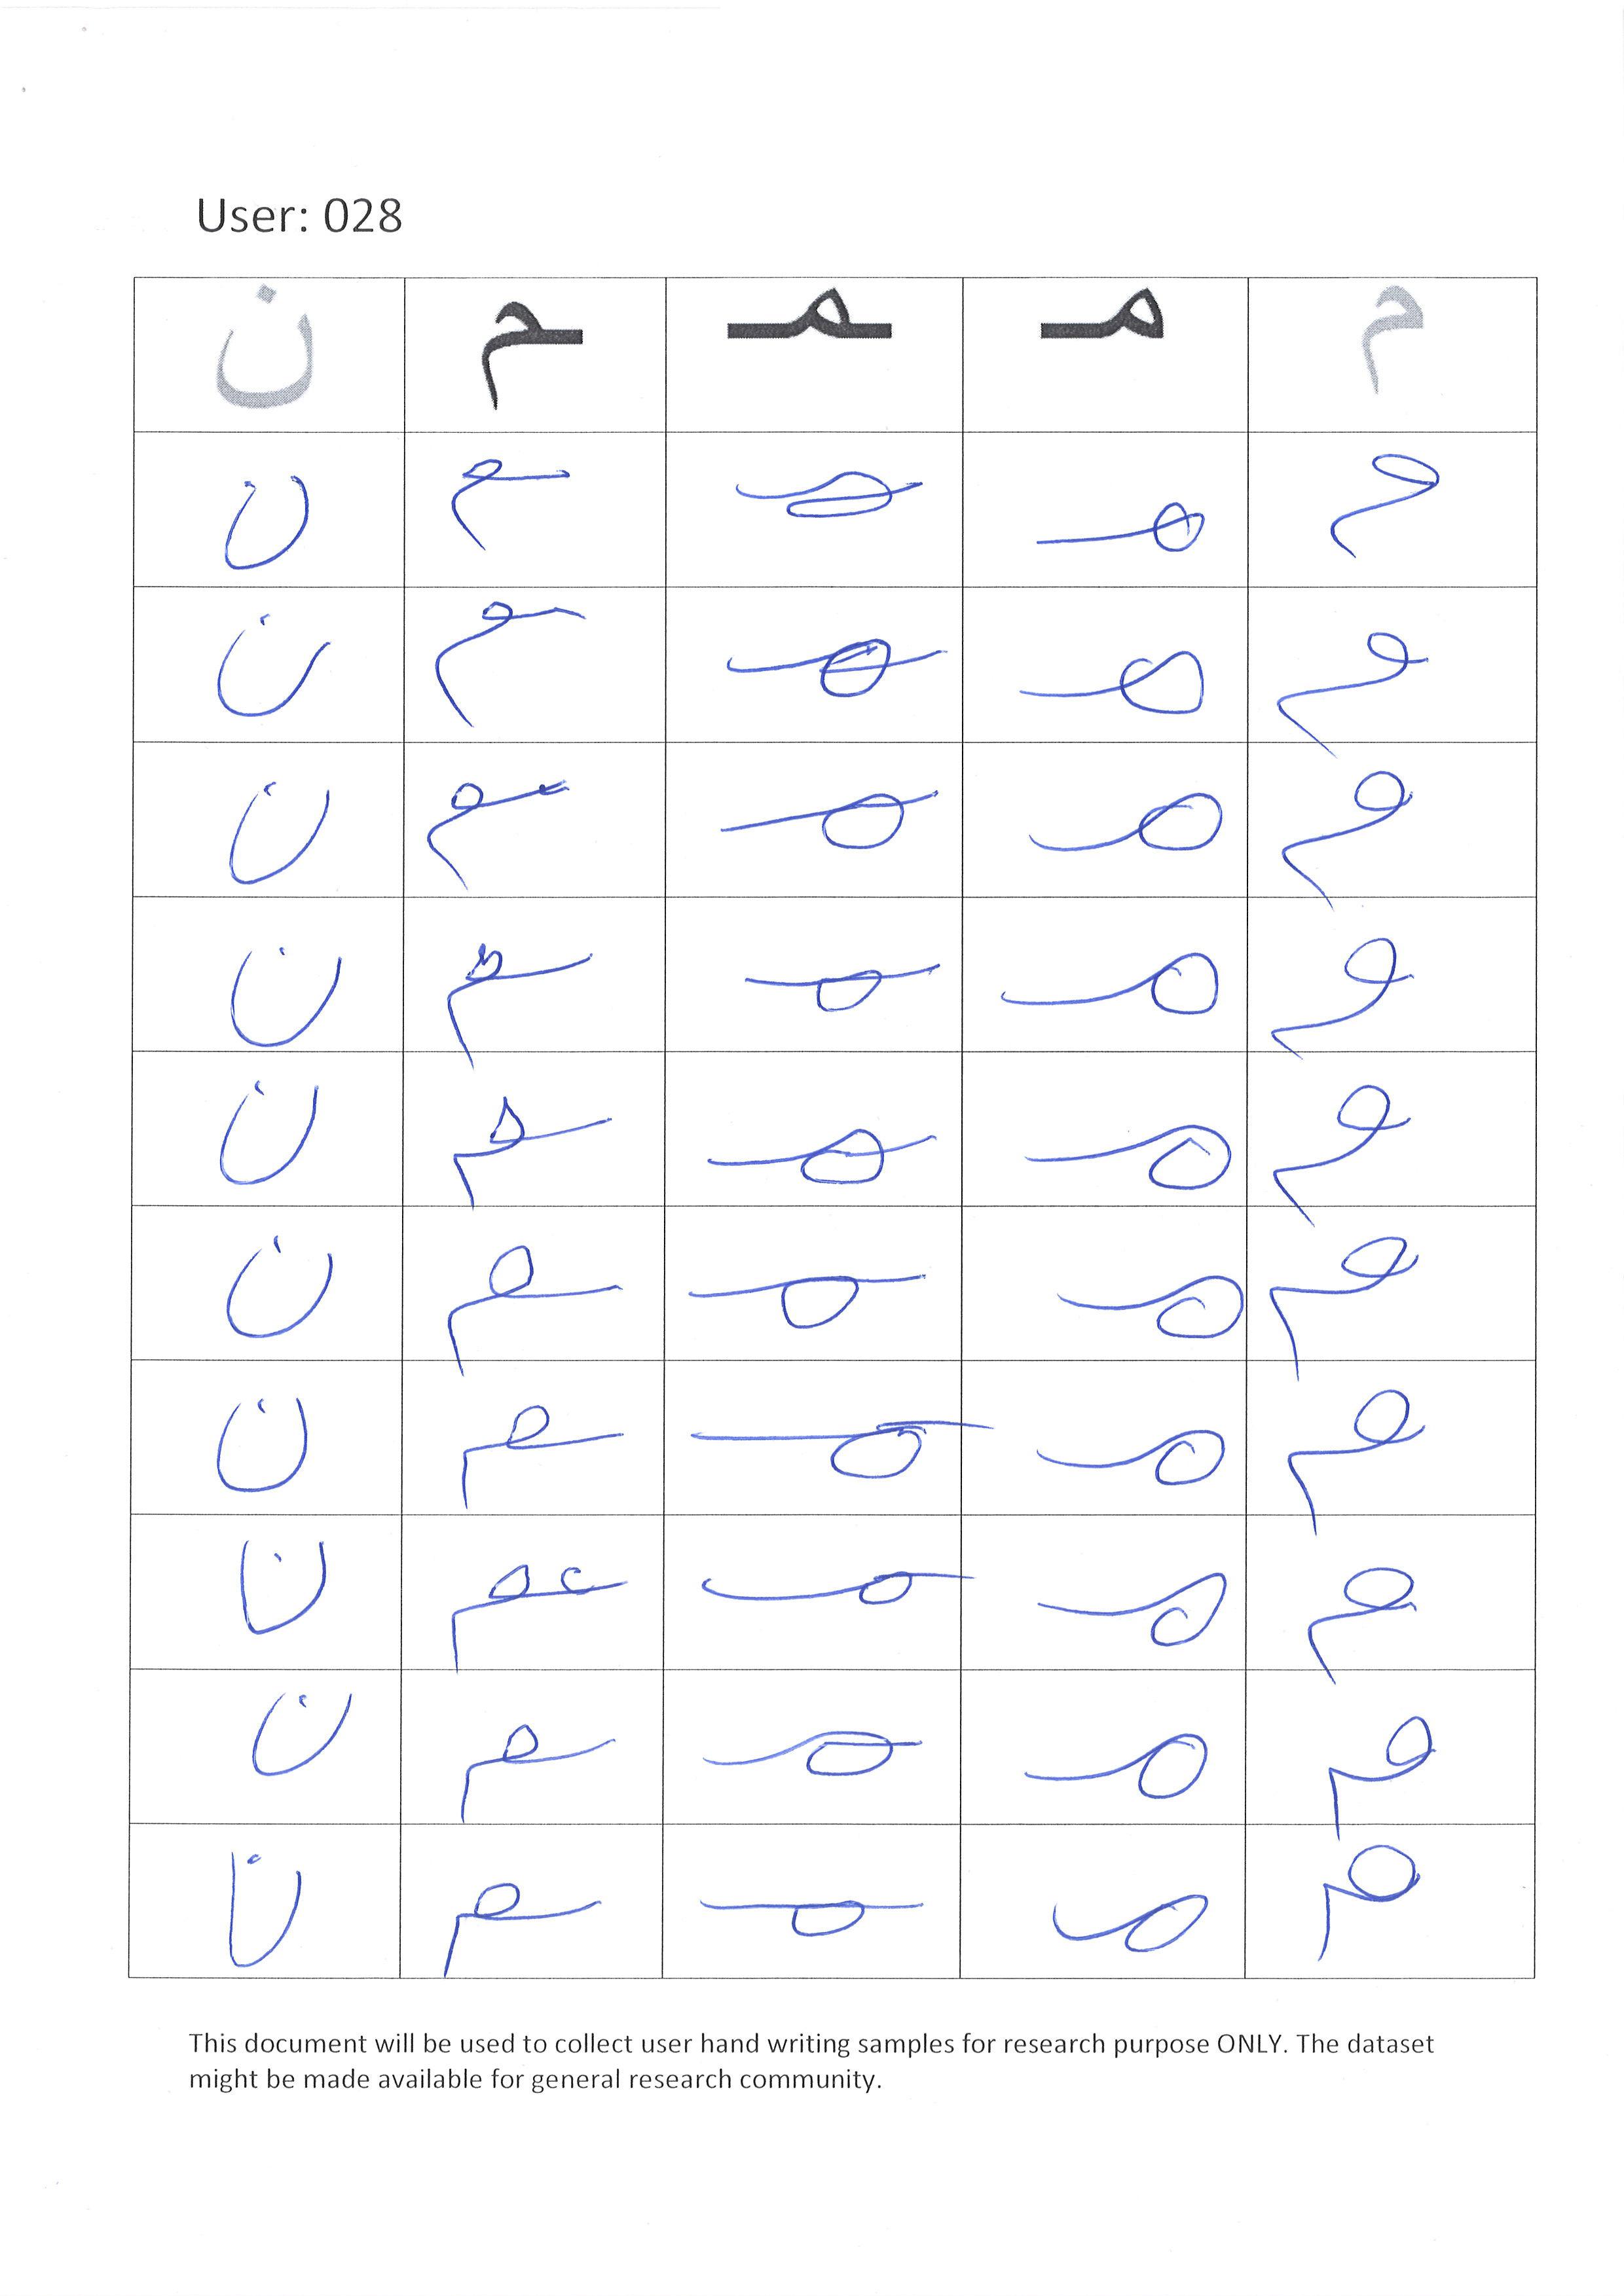 User: 028
م مـ ـمـ ـم ن
م مـ ـمـ ـم ن
م مـ ـمـ ـم ن
م مـ ـمـ ـم ن
م مـ ـمـ ـم ن
م مـ ـمـ ـم ن
م مـ ـمـ ـم ن
م مـ ـمـ ـم ن
م مـ ـمـ ـم ن
م مـ ـمـ ـم ن
م مـ ـمـ ـم ن
This document will be used to collect user hand writing samples for research purpose ONLY. The dataset
might be made available for general research community.